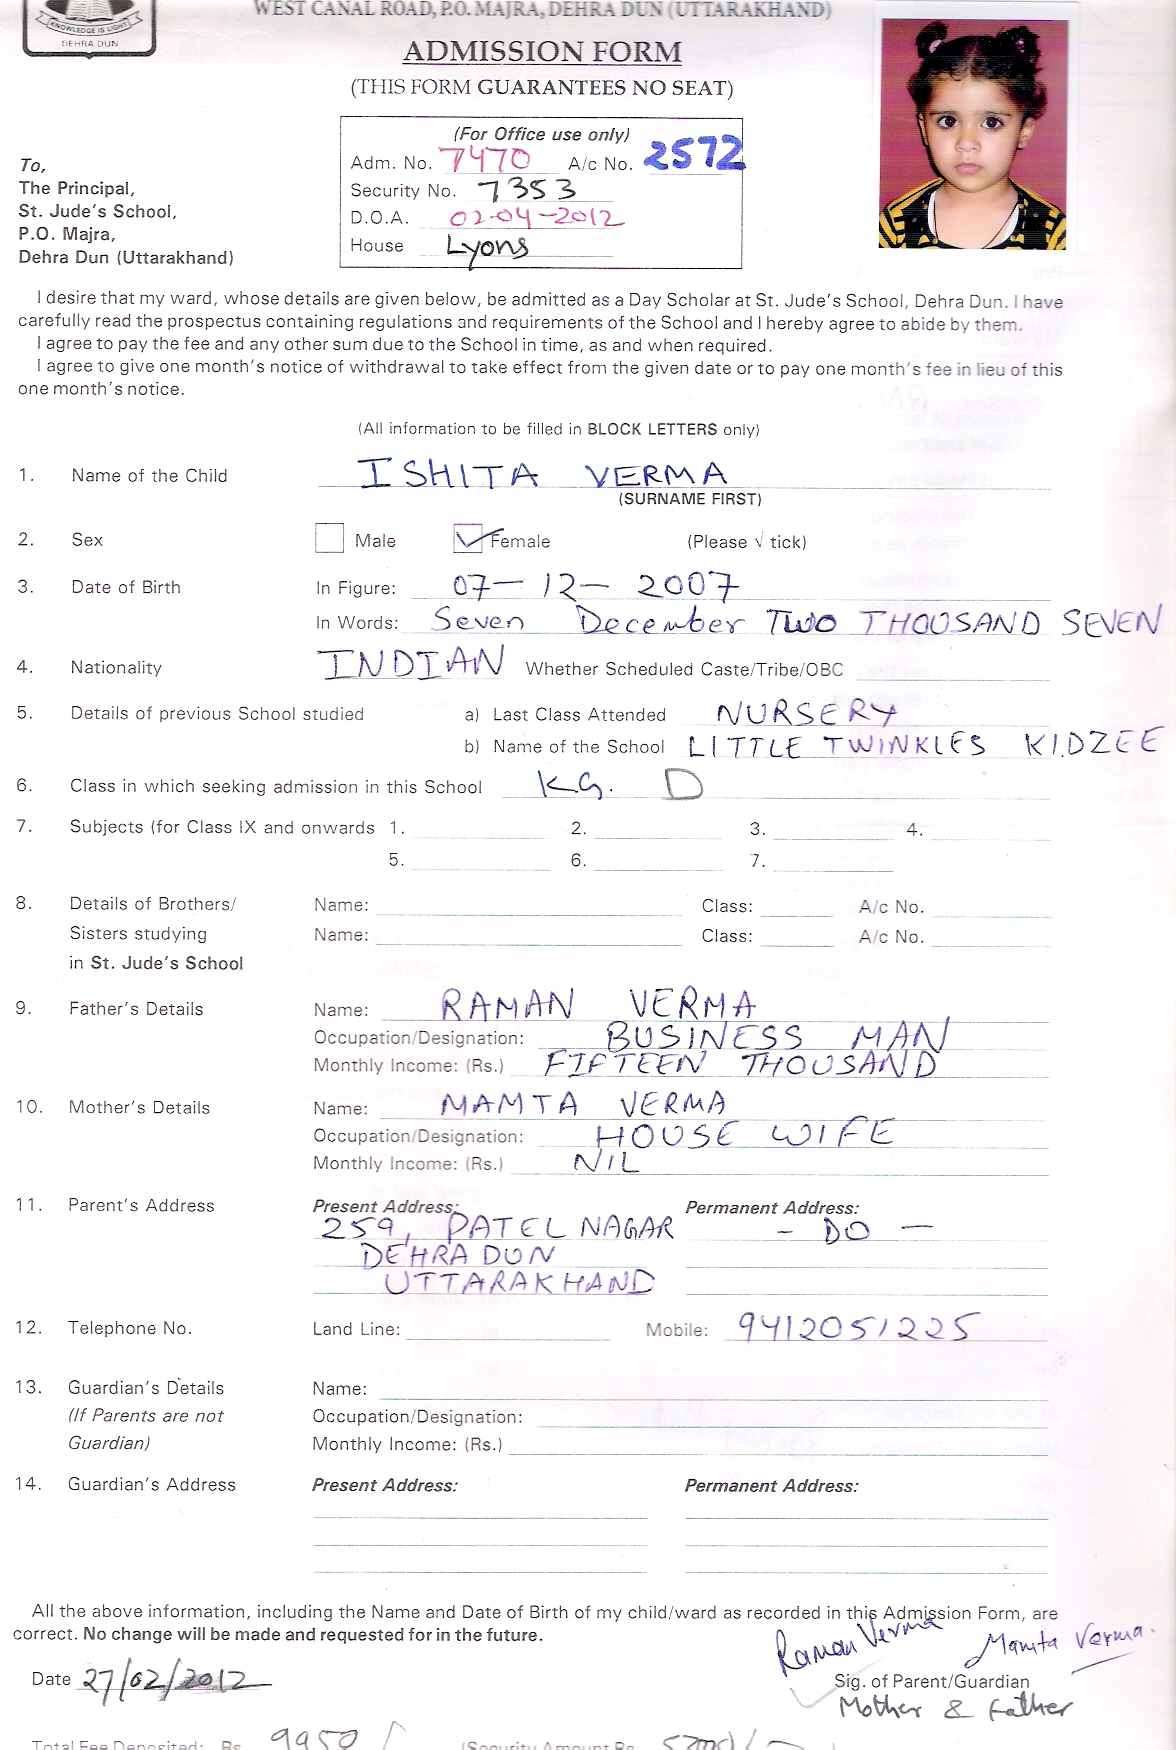 KNOWLEDGE IS LIGHT
DEHRA DUN
WEST CANAL ROAD, P.O. MAJRA, DEHRA DUN (UTTARAKHAND)
ADMISSION FORM
(THIS FORM GUARANTEES NO SEAT)
(For Office use only)
Adm. No. 7470 A/c No. 2572
Security No. 7353
D.O.A. 02-04-2012
House Lyons
To,
The Principal,
St. Jude's School,
P.O. Majra,
Dehra Dun (Uttarakhand)
I desire that my ward, whose details are given below, be admitted as a Day Scholar at St. Jude's School, Dehra Dun. I have
carefully read the prospectus containing regulations and requirements of the School and I hereby agree to abide by them.
I agree to pay the fee and any other sum due to the School in time, as and when required.
I agree to give one month's notice of withdrawal to take effect from the given date or to pay one month's fee in lieu of this
one month's notice.
(All information to be filled in BLOCK LETTERS only)
1. Name of the Child ISHITA VERMA
(SURNAME FIRST)
2. Sex Male Female (Please √ tick)
3. Date of Birth In Figure: 07-12-2007
In Words: Seven December TWO THOUSAND SEVEN
4. Nationality INDIAN Whether Scheduled Caste/Tribe/OBC
5. Details of previous School studied a) Last Class Attended NURSERY
b) Name of the School LITTLE TWINKLES KIDZEE
6. Class in which seeking admission in this School KG. D
7. Subjects (for Class IX and onwards 1. 2. 3. 4.
5. 6. 7.
8. Details of Brothers/ Name: Class: A/c No.
Sisters studying Name: Class: A/c No.
in St. Jude's School
9. Father's Details Name: RAMAN VERMA
Occupation/Designation: BUSINESS MAN
Monthly Income: (Rs.) FIFTEEN THOUSAND
10. Mother's Details Name: MAMTA VERMA
Occupation/Designation: HOUSE WIFE
Monthly Income: (Rs.) NIL
11. Parent's Address Present Address: Permanent Address:
259, PATEL NAGAR - DO -
DEHRA DUN
UTTARAKHAND
12. Telephone No. Land Line: Mobile: 9412051225
13. Guardian's Details Name:
(If Parents are not Occupation/Designation:
Guardian) Monthly Income: (Rs.)
14. Guardian's Address Present Address: Permanent Address:
All the above information, including the Name and Date of Birth of my child/ward as recorded in this Admission Form, are
correct. No change will be made and requested for in the future.
Raman Verma Mamta Verma.
Date 27/02/2012 Sig. of Parent/Guardian
Mother & Father
Total Fee Deposited: Rs. 9950/ (Security Amount Rs.